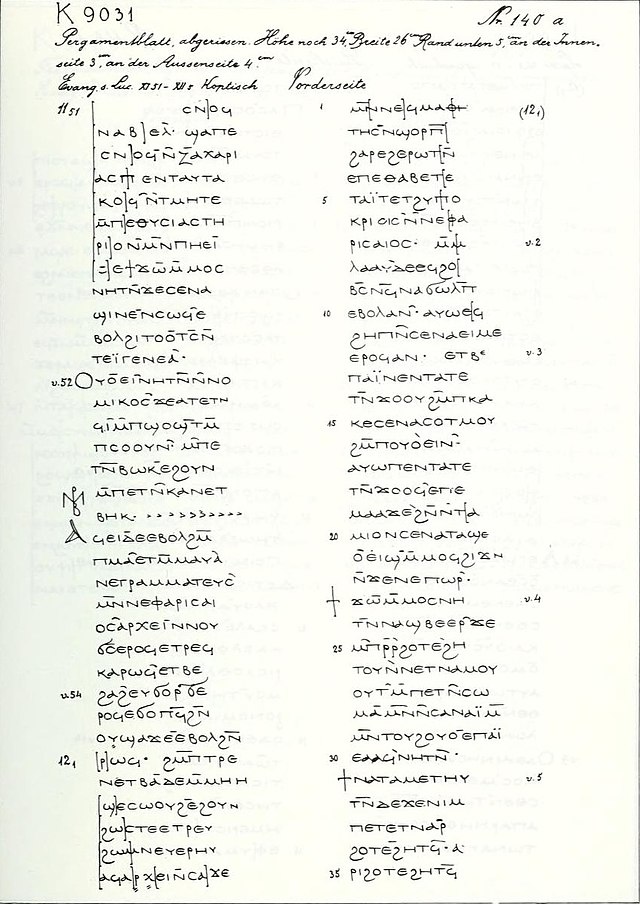 K 9031
Nr. 140 a
Pergamentblatt, abgerissen. Höhe noch 34 cm, Breite 26 cm Rand unten 5 cm, an der Innen-
seite 3 cm, an der Aussenseite 4 cm
Evang. s. Luc. XI 51 - XII 5 Koptisch Vorderseite
11 51 [ ⲥⲛ]ⲟϥ
[ⲛⲁⲃ]ⲉⲗ· ϣⲁⲡⲉ
[ⲥⲛ]ⲟϥⲛ̄ⲍⲁⲭⲁⲣⲓ
[ⲁⲥⲡ]ⲉⲛⲧⲁⲩⲧⲁ
[ⲕⲟ]ϥⲛ̄ⲧⲙⲏⲧⲉ
[ⲙ̄ⲡ]ⲉⲑⲩⲥⲓⲁⲥⲧⲏ
[ⲣⲓ]ⲟⲛⲙ̄ⲛⲡⲏⲉⲓ̈
[ϩ]ⲉϯϫⲱⲙ̄ⲙⲟⲥ
ⲛⲏⲧⲛ̄ϫⲉⲥⲉⲛⲁ
ϣⲓⲛⲉⲛ̄ⲥⲱϥⲉ
ⲃⲟⲗϩⲓⲧⲟⲟⲧⲥⲛ̄
ⲧⲉⲓ̈ⲅⲉⲛⲉⲁ·
v.52 ⲟⲩⲟⲉⲓⲛⲏⲧⲛ̄ⲛ̄ⲛⲟ
ⲙⲓⲕⲟⲥϫⲉⲁⲧⲉⲧⲛ
ϥⲓⲙ̄ⲡϣⲟϣⲧⲙ̄
ⲡⲥⲟⲟⲩⲛ· ⲙ̄ⲡⲉ
ⲧⲛ̄ⲃⲱⲕⲉϩⲟⲩⲛ
ⲙ̄ⲡⲉⲧⲛ̄ⲕⲁⲛⲉⲧ
ⲃⲏⲕ· >>>>>>>>>>>
ⲁϥⲉⲓⲇⲉⲉⲃⲟⲗϩⲙ̄
ⲡⲙⲁⲉⲧⲙ̄ⲙⲁⲩⲁ
ⲛⲉⲅⲣⲁⲙⲙⲁⲧⲉⲩⲥ
ⲙ̄ⲛⲛⲉⲫⲁⲣⲓⲥⲁⲓ
ⲟⲥⲁⲣⲭⲉⲓⲛⲛⲟⲩ
ϭⲥⲉⲣⲟϥⲉⲧⲣⲉϥ
ⲕⲁⲣⲱϥⲉⲧⲃⲉ
v.54 ϩⲁϩⲉⲩϭⲟⲣϭⲉ
ⲣⲟϥⲉϭⲟⲡϥϩⲛ̄
ⲟⲩϣⲁϫⲉⲉⲃⲟⲗϩⲛ̄
12 1 [ⲣ]ⲱϥ· ϩⲙ̄ⲡⲧⲣⲉ
ⲛⲉⲧⲃⲁⲇⲉⲙ̄ⲙⲏⲏ
[ϣ]ⲉⲥⲱⲟⲩϩⲉϩⲟⲩⲛ
[ϩⲱ]ⲥⲧⲉⲉⲧⲣⲉⲩ
[ϩⲱ]ⲙⲛⲉⲩⲉⲣⲏⲩ
[ⲁϥⲁⲣⲭ]ⲉⲓⲛ̄ⲥ[ⲁ]ϫⲉ
1 ⲙ̄ⲛⲛⲉϥⲙⲁⲑⲏ (12,1)
ⲧⲏⲥⲛ̄ϣⲟⲣⲡ[
ϩⲁⲣⲉϩⲉⲣⲱⲧⲛ̄
ⲉⲡⲉⲑⲁⲃⲉⲧ[ⲉ
5 ⲧⲁⲓ̈ⲧⲉⲧϩⲩⲡⲟ
ⲕⲣⲓⲥⲓⲥⲛ̄ⲛⲉⲫⲁ
ⲣⲓⲥⲁⲓⲟⲥ· ⲙ̄ⲙⲛ v.2
ⲗⲁⲁⲩⲇⲉⲉϥϩⲟ[
ⲃⲥⲛ̄ϥⲛⲁϭⲱⲗⲡ̄
10 ⲉⲃⲟⲗⲁⲛ· ⲁⲩⲱⲉϥ
ϩⲏⲡⲛ̄ⲥⲉⲛⲁⲉⲓⲙⲉ
ⲉⲣⲟϥⲁⲛ· ⲉⲧⲃⲉ v.3
ⲡⲁⲓ̈ⲛⲉⲛⲧⲁⲧⲉ
ⲧⲛ̄ϫⲟⲟⲩϩⲙ̄ⲡⲕⲁ
15 ⲕⲉⲥⲉⲛⲁⲥⲟⲧⲙⲟⲩ
ϩⲙ̄ⲡⲟⲩⲟⲉⲓⲛ·
ⲁⲩⲱⲡⲉⲛⲧⲁⲧⲉ
ⲧⲛ̄ϫⲟⲟϥⲉⲡⲉ
ⲙⲁⲁϫⲉϩⲛ̄ⲛ̄ⲧⲁ
20 ⲙⲓⲟⲛⲥⲉⲛⲁⲧⲁϣⲉ
ⲟⲉⲓϣⲙ̄ⲙⲟϥϩⲓϫⲛ
ⲛ̄ϫⲉⲛⲉⲡⲱⲣ·
ϯϫⲱⲙ̄ⲙⲟⲥⲛⲏ v.4
ⲧⲛ̄ⲛⲁϣⲃⲉⲉⲣϫⲉ
25 ⲙ̄ⲡⲣ̄ⲣ̄ϩⲟⲧⲉϩⲏ
ⲧⲟⲩⲛ̄ⲛⲉⲧⲛⲁⲙⲟⲩ
ⲟⲩⲧⲙ̄ⲡⲉⲧⲛ̄ⲥⲱ
ⲙⲁⲙ̄ⲛ̄ⲛ̄ⲥⲁⲛⲁⲓ̈ⲙ̄
ⲙ̄ⲛⲧⲟⲩϩⲟⲩⲟⲉⲡⲁⲓ̈
30 ⲉⲁⲁϥⲛⲏⲧⲛ̄·
ϯⲛⲁⲧⲁⲙⲉⲧⲏⲩ v.5
ⲧⲛ̄ⲇⲉϫⲉⲛⲓⲙ
ⲡⲉⲧⲉⲧⲛⲁⲣ̄
ϩⲟⲧⲉϩⲏⲧϥ̄· ⲁ
35 ⲣⲓϩⲟⲧⲉϩⲏⲧϥ̄